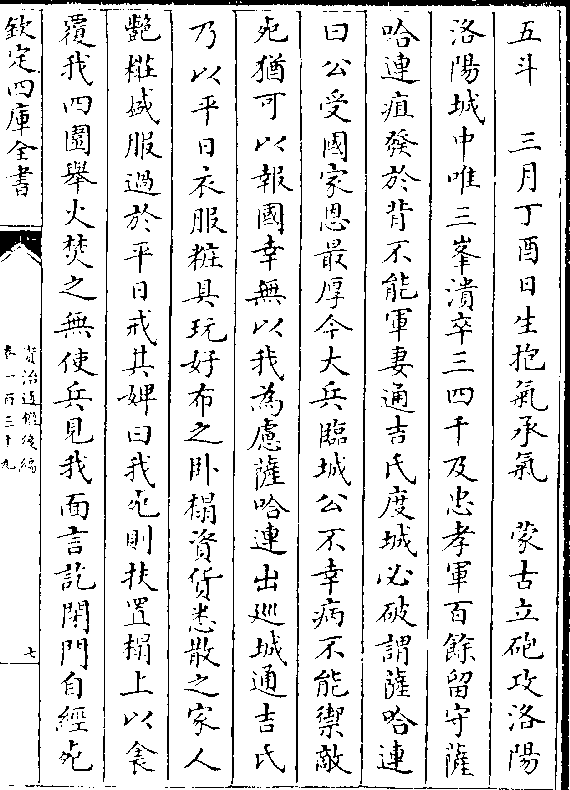 五斗　三月丁酉日生抱氣承氣　蒙古立砲攻洛陽
洛陽城中唯三峯潰卒三四千及忠孝軍百餘留守薩
哈連疽發於背不能軍妻通吉氏度城必破謂薩哈連
曰公受國家恩最厚今大兵臨城公不幸病不能禦敵
死猶可以報國幸無以我為慮薩哈連出巡城通吉氏
乃以平日衣服粧具玩好布之卧榻資貨悉散之家人
艷粧盛服過於平日戒其婢曰我死則扶置榻上以衾
覆我四圍舉火焚之無使兵見我面言訖閉門自經死
欽定四庫全書
資治通鑑後編
卷一百三十九
七